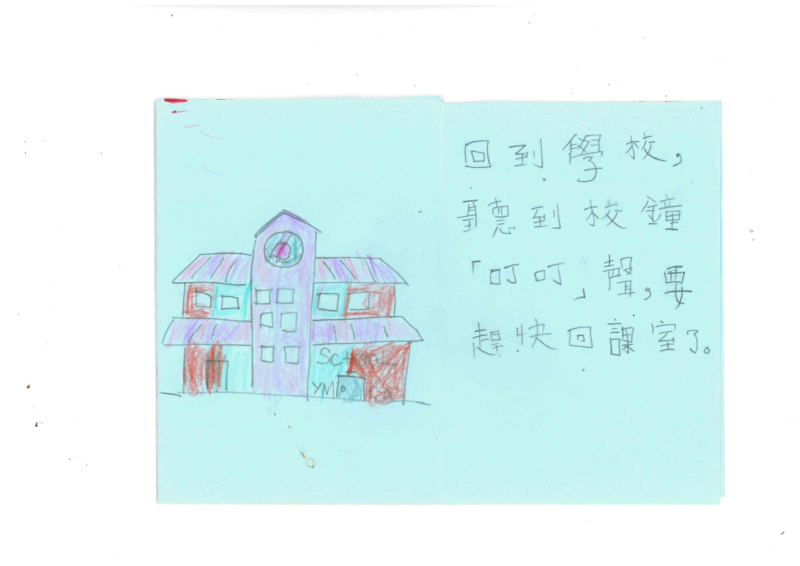 School
回到學校，
聽到校鐘
「叮叮」聲，要
趕快回課室了。